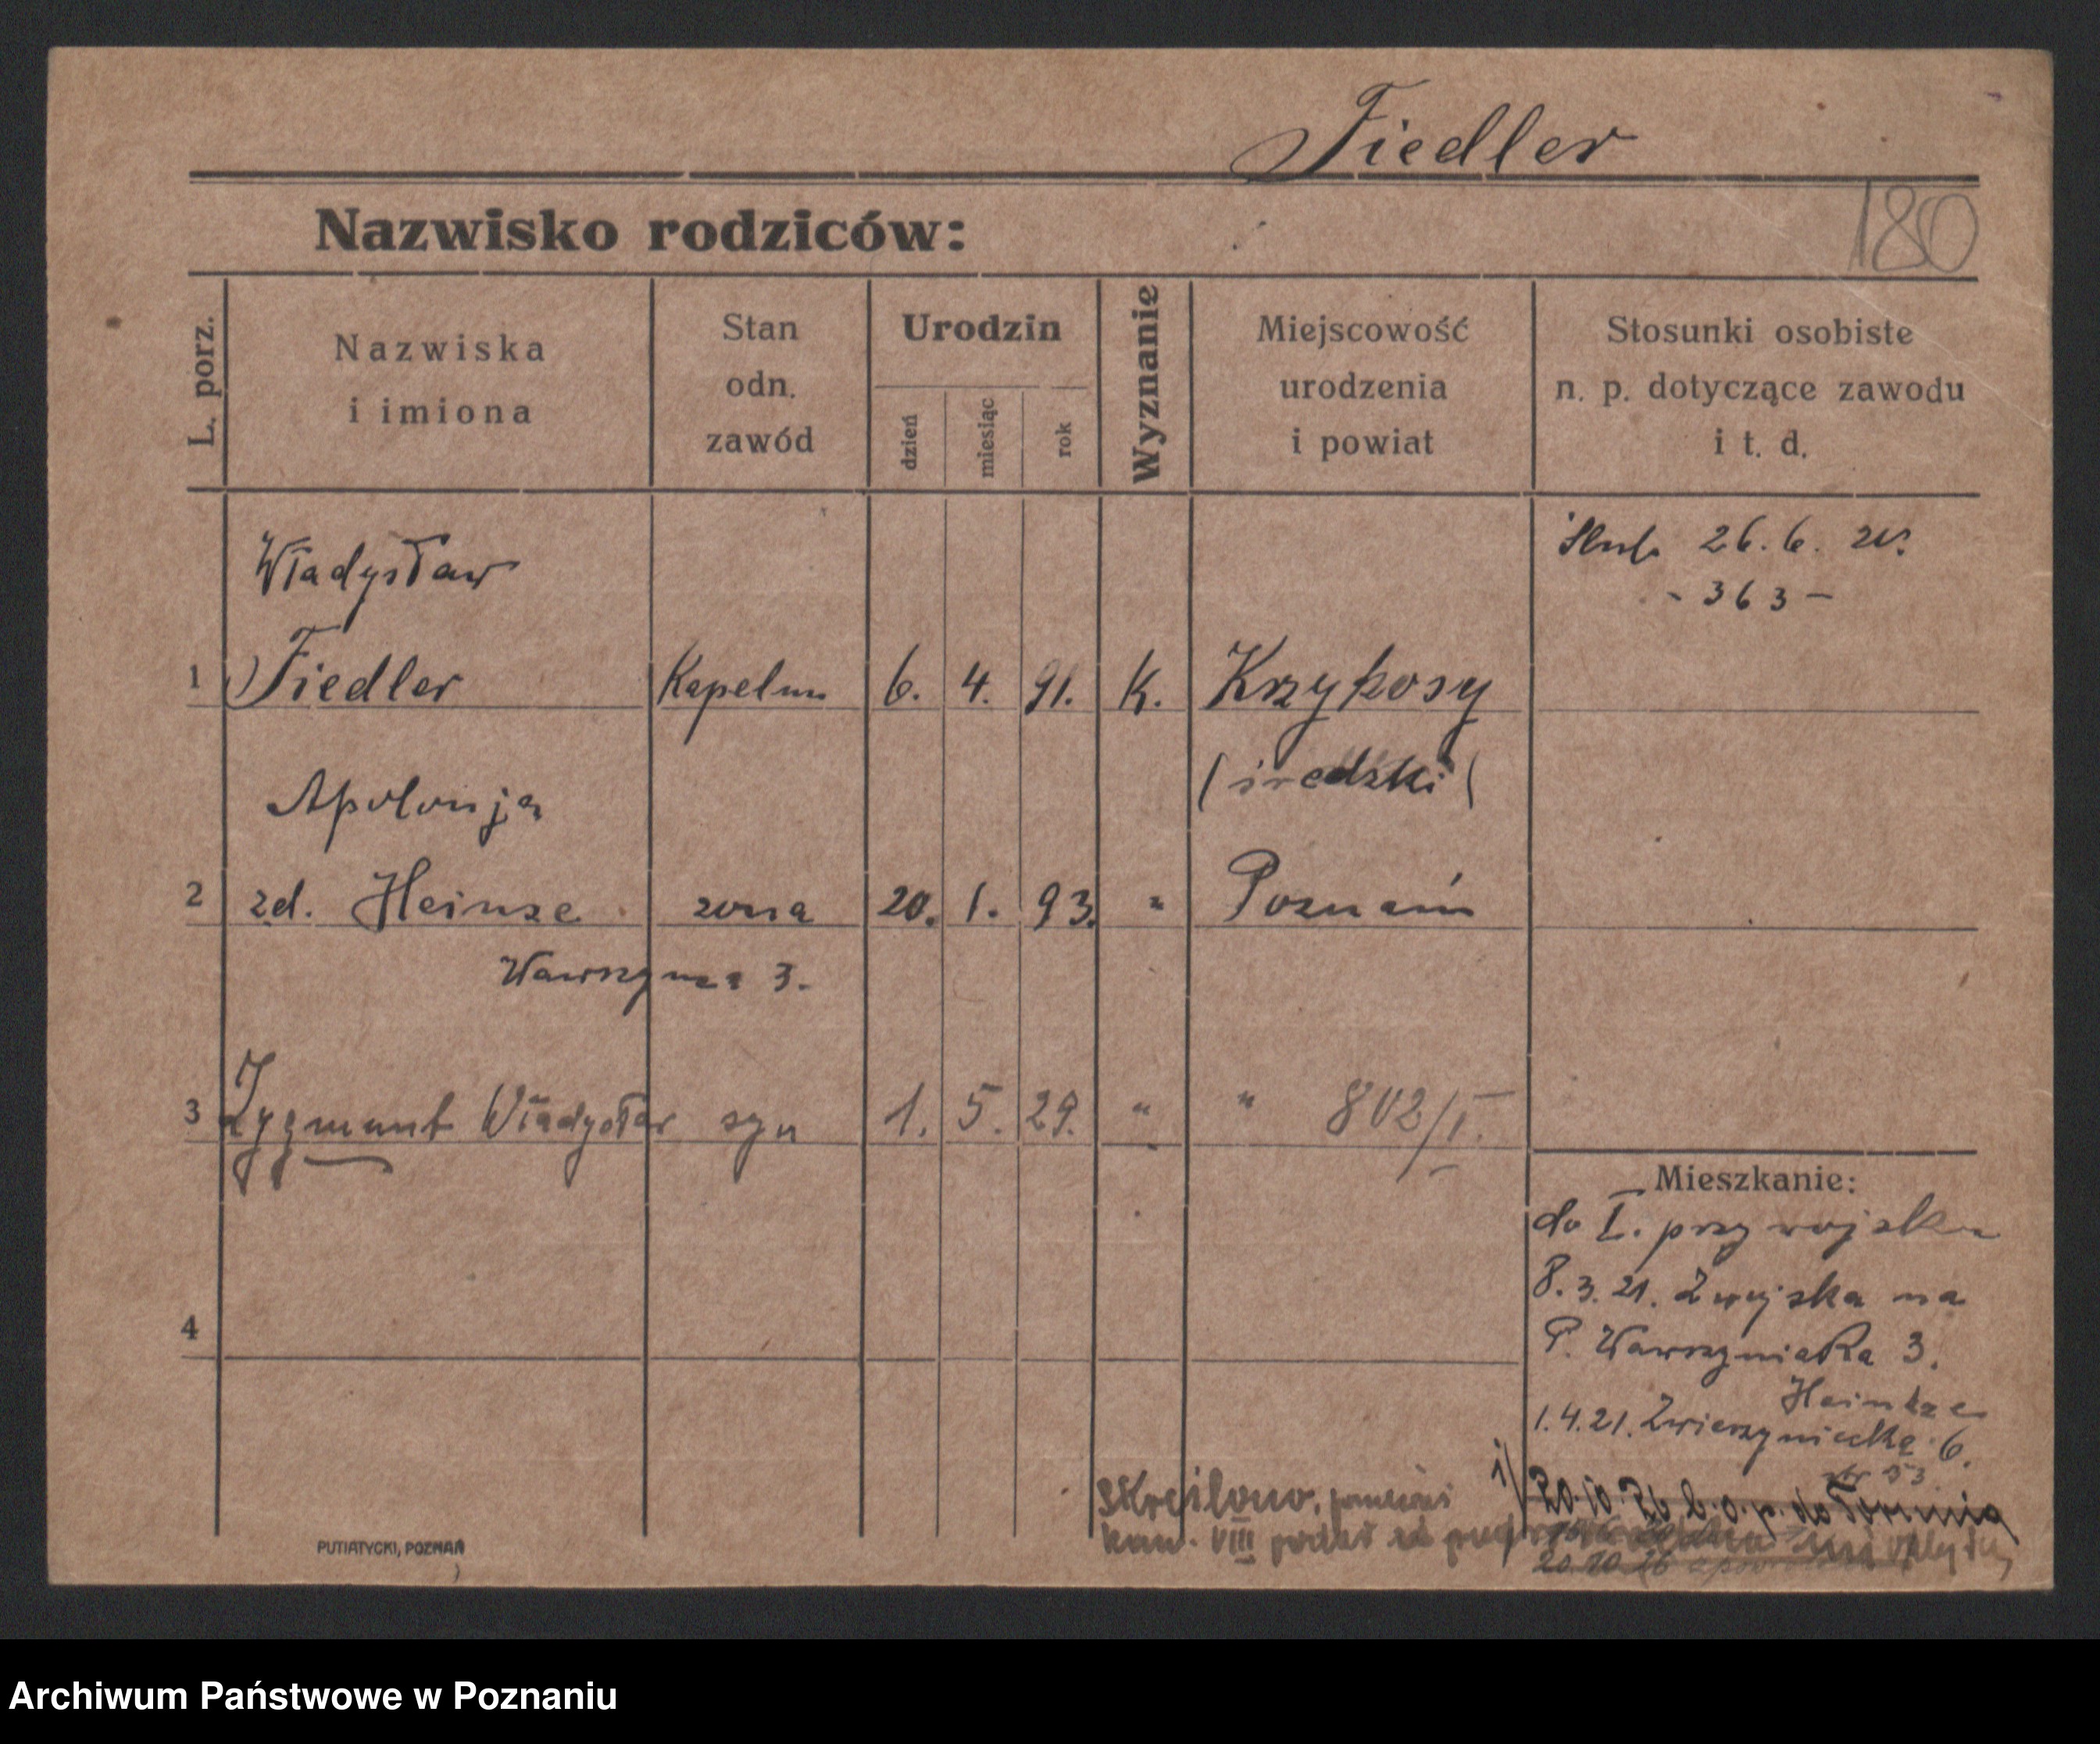 Fiedler
Nazwisko rodziców:
180
L. porz.
Nazwiska
i imiona
Stan
odn.
zawód
Urodzin
dzień
miesiąc
rok
Wyznanie
Miejscowość
urodzenia
i powiat
Stosunki osobiste
n. p. dotyczące zawodu
i t. d.
Władysław
ślub 26. 6.
- 363 -
1 Fiedler Kapelm 6. 4. 91. K. Krzykosy
(średzki)
Apolonja
2 zd. Heinze żona 20. 1. 93. " Poznań
3.
3 Zygmunt Władysław syn 1. 5. 29. " " 802/I.
Mieszkanie:
do I. przy wojsku
8.3.21. Z wojska na
P. Wawrzyniaka 3.
Heintze
1.4.21. Zwierzyniecką 6.
4
1/ 20.10.26 b.o.p. do
Skreślono, ponieważ
VIII podał
20.10.26
PUTIATYCKI, POZNAŃ
Archiwum Państwowe w Poznaniu